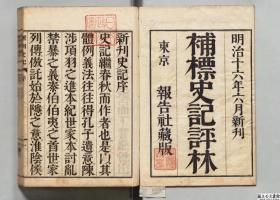 明治十六年六月新刊
補標史記評林
東京 報告社藏版
新刊史記序
史記繼春秋而作者也是以其
體例義法往往得孔子遺意陳
涉項羽之進本紀世家本討亂
禁暴之義泰伯伯夷之首世家
列傳倣託始於隱之意淮陰侯